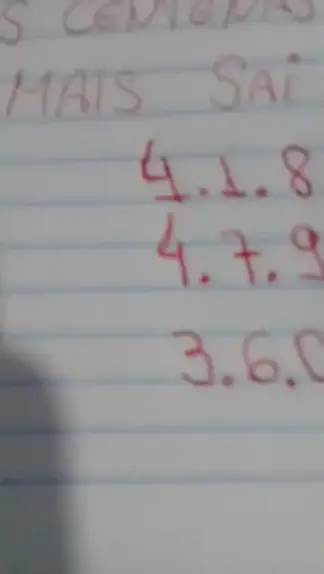 S CENTENAS
MAIS SAI
4.1.8
4.7.9
3.6.0